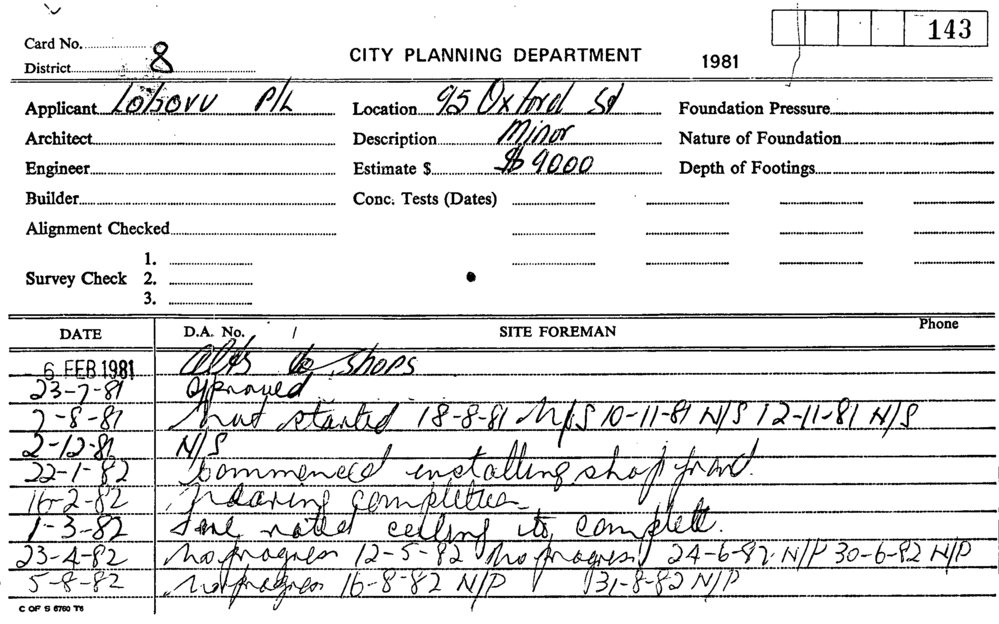 143
Card No.
District 8
CITY PLANNING DEPARTMENT 1981
Applicant P/L Location 95 Oxford St Foundation Pressure
Architect Description Minor Nature of Foundation
Engineer Estimate $ $9000 Depth of Footings
Builder Conc. Tests (Dates)
Alignment Checked
1.
Survey Check 2.
3.
DATE D.A. No. / SITE FOREMAN Phone
- 6 FEB 1981 Alts to shops
23-7-81 approved
7-8-81 not started 18-8-81 N/S 10-11-81 N/S 12-11-81 N/S
2-12-81 N/S
22-1-82 Commenced installing shop front.
16-2-82 Nearing completion
1-3-82 noted ceiling to complete.
23-4-82 No progress 12-5-82 No progress 24-6-82 N/P 30-6-82 N/P
5-8-82 No progress 16-8-82 N/P 31-8-82 N/P
C OF S 6760 T6